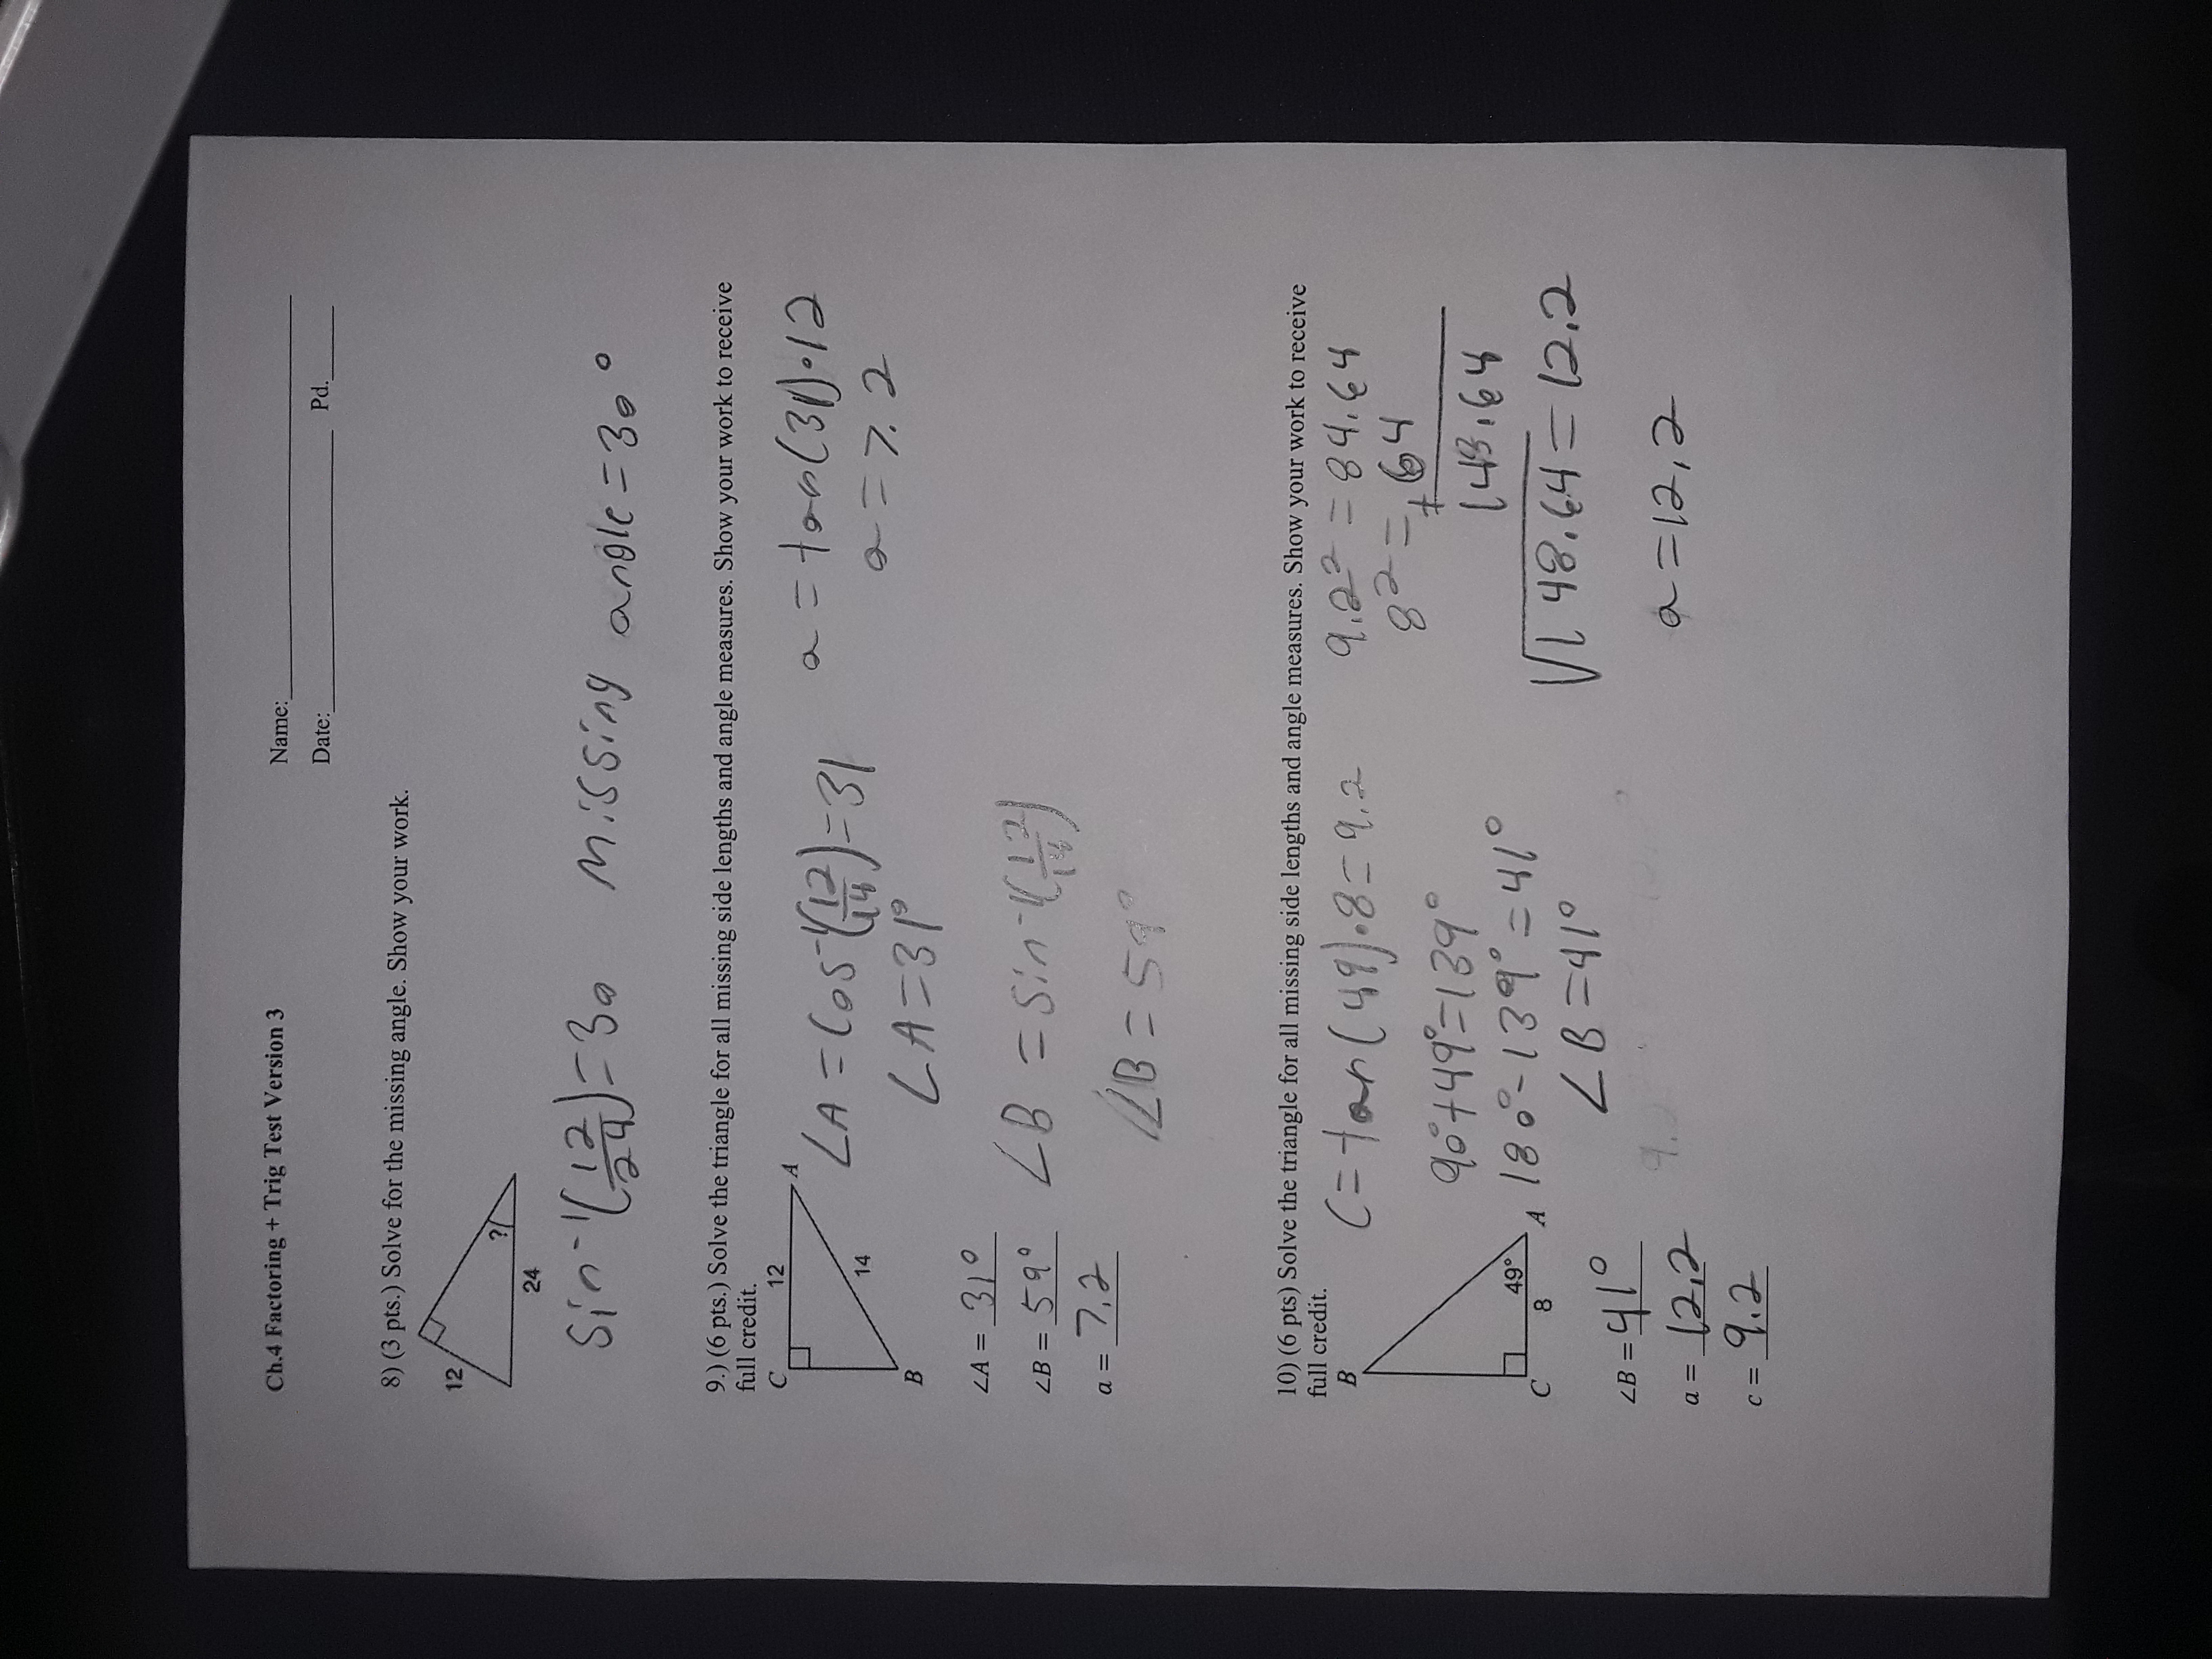 Ch.4 Factoring + Trig Test Version 3
Name:
Date: Pd.
8) (3 pts.) Solve for the missing angle. Show your work.
12
?
24
sin⁻¹(12/24)=30 Missing angle=30°
9.) (6 pts.) Solve the triangle for all missing side lengths and angle measures. Show your work to receive
full credit.
C 12 A
14
B
∠A = Cos⁻¹(12/14)=31
∠A=31°
a = tan(31)·12
a = 7.2
∠A = 31°
∠B = 59°
a = 7.2
∠B = Sin⁻¹(12/14)
∠B = 59°
10) (6 pts) Solve the triangle for all missing side lengths and angle measures. Show your work to receive
full credit.
B
49°
C 8 A
C = tan(49)·8=9.2
90°+49°=139°
180°-139°=41°
∠B=41°
9.2² = 84.64
8² = +64
148.64
√148.64 = 12.2
a = 12.2
∠B = 41°
a = 12.2
c = 9.2